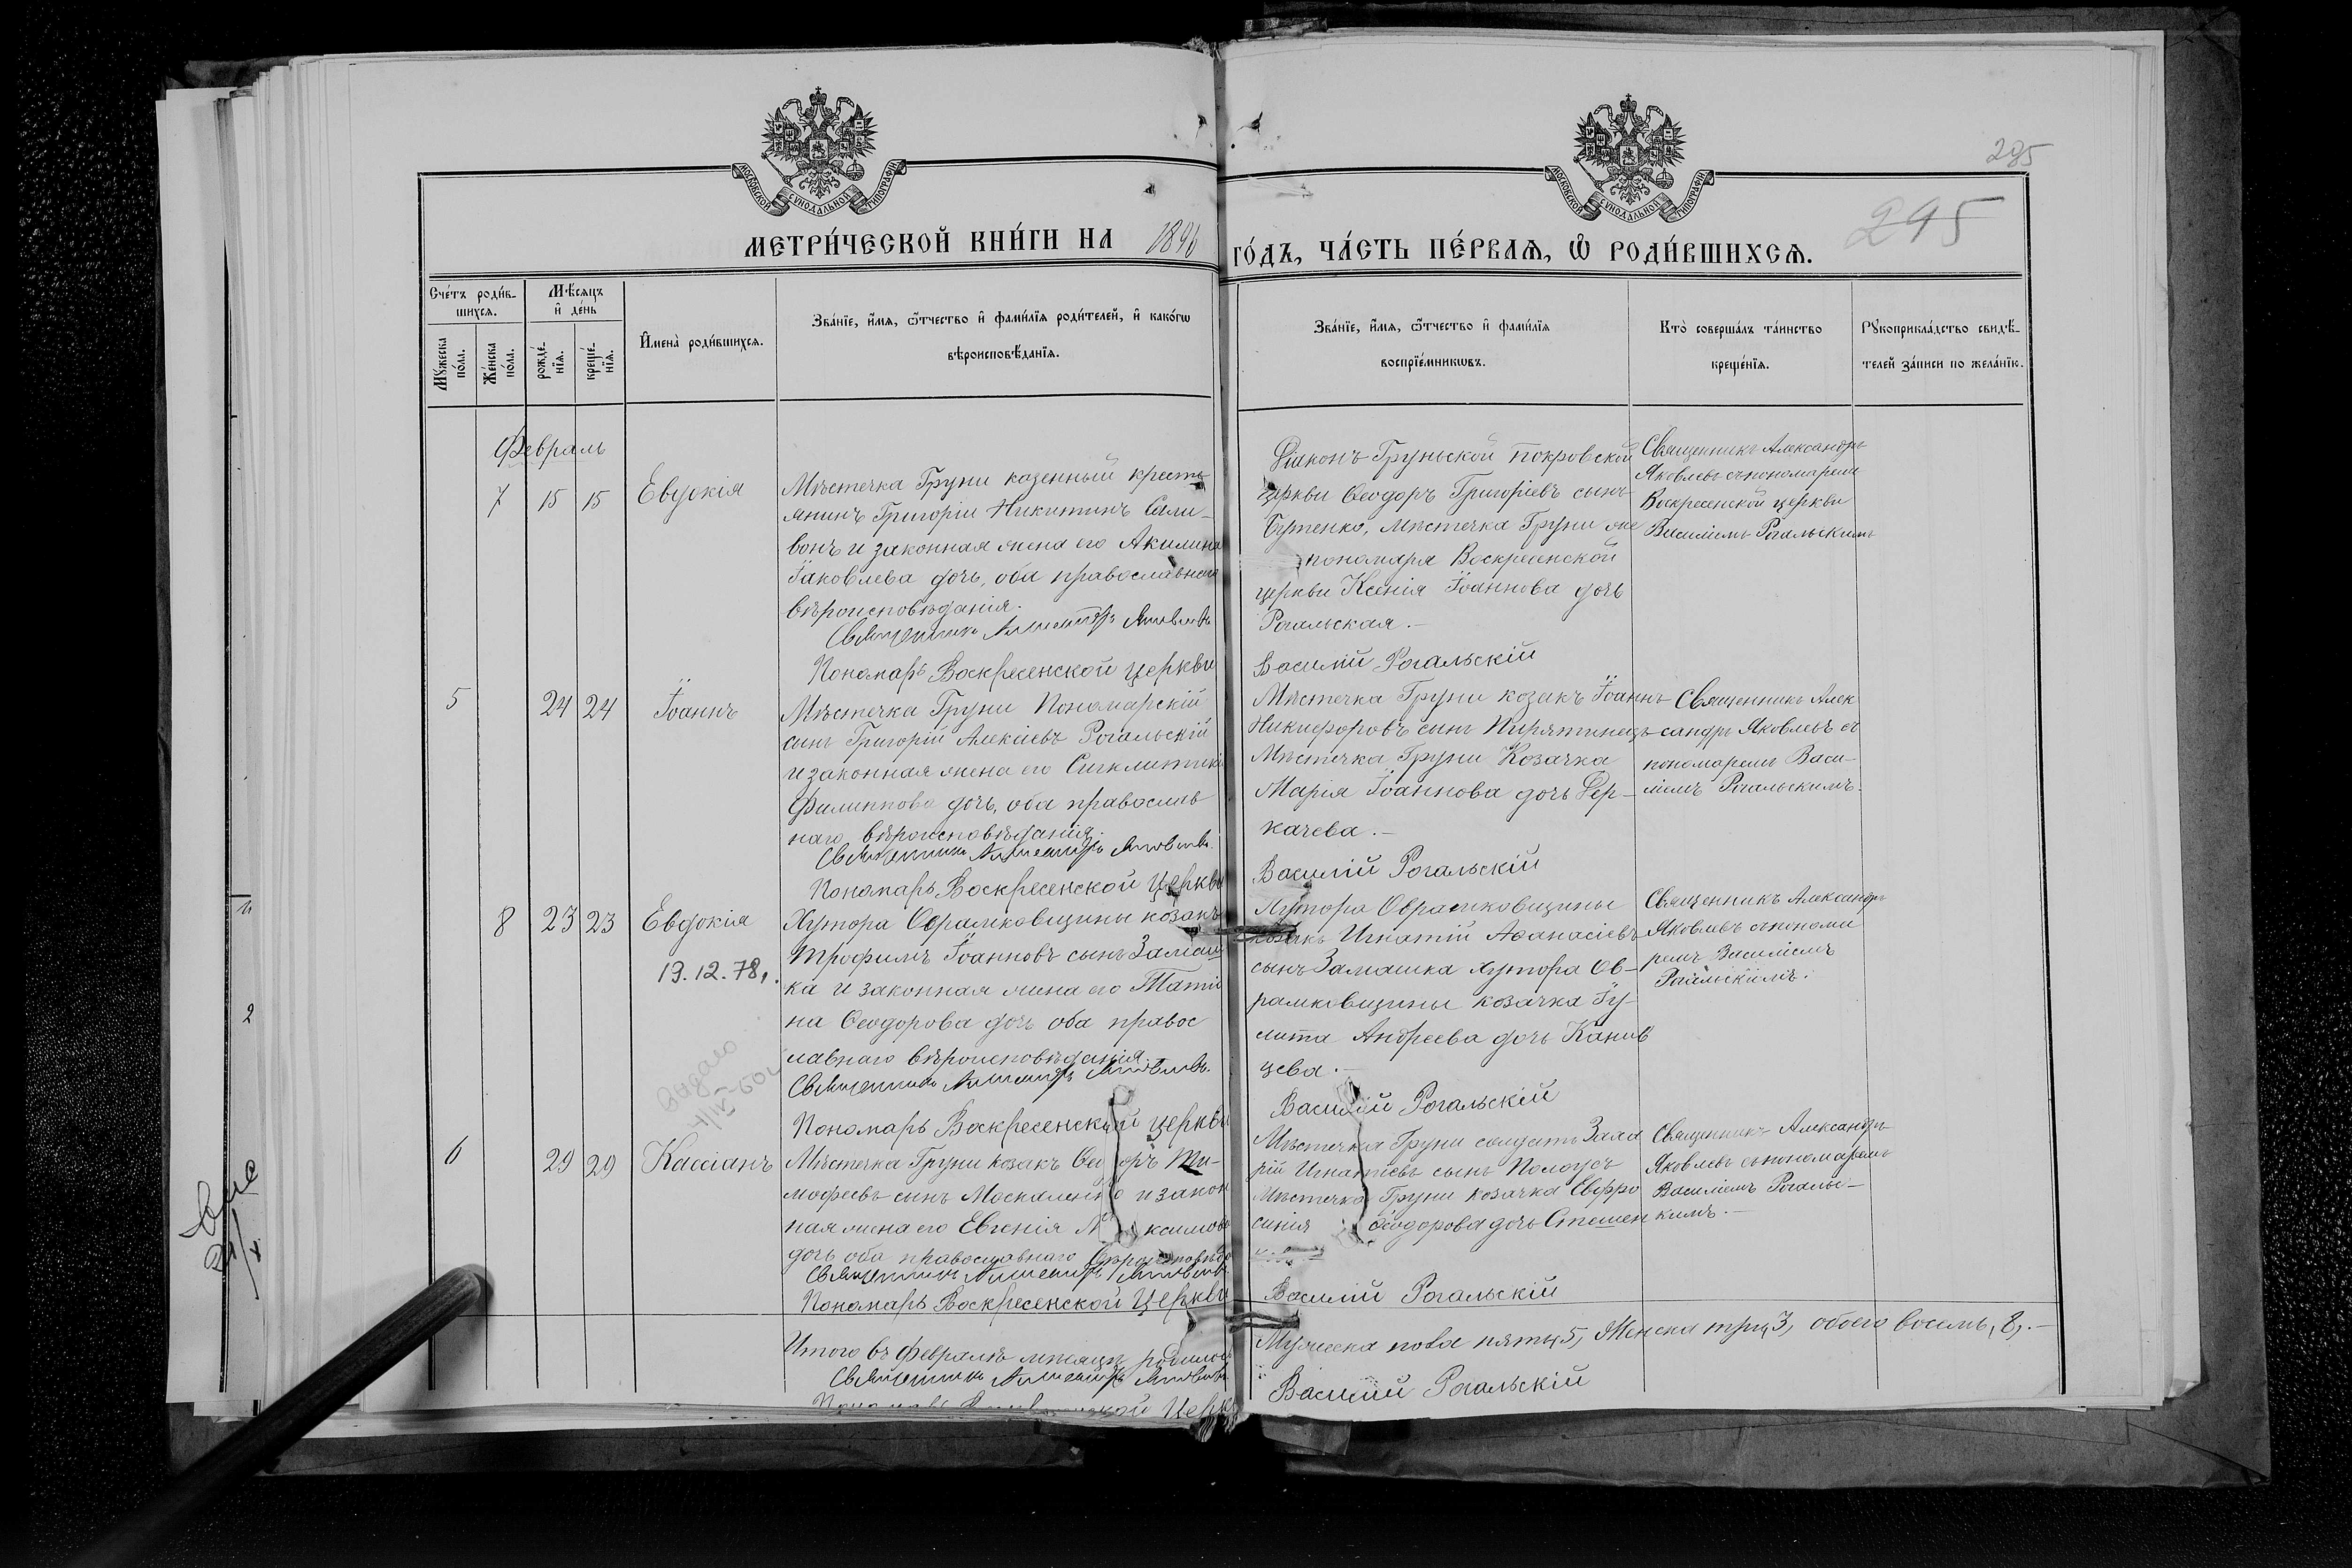 МОСКОВСКОЙ СѴНОДАЛЬНОЙ ТИПОГРАФІИ
МОСКОВСКОЙ СѴНОДАЛЬНОЙ ТИПОГРАФІИ
285
295
МЕТРИ́ЧЕСКОЙ КНИ́ГИ НА 1896
ГО́ДЪ, ЧА́СТЬ ПЕ́РВАѦ, Ѡ҆ РОДИ́ВШИХСѦ.
Сче́тъ роди́в-
шихсѧ.
Мꙋ́жеска
по́ла.
Же́нска
по́ла.
Мѣ́сяцъ
и҆ де́нь
рожде́-
нїѧ.
креще́-
нїѧ.
И҆мена̀ роди́вшихсѧ.
Зва́нїе, и҆́мѧ, ѻ҆́тчество и҆ фами́лїѧ роди́телей, и҆ како́гѡ
вѣроисповѣ́данїѧ.
Зва́нїе, и҆́мѧ, ѻ҆́тчество и҆ фами́лїѧ
воспрїе́мникѡвъ.
Кто̀ соверша́лъ та́инство
креще́нїѧ.
Рꙋкоприкла́дство свидѣ́-
телей за́писи по жела́нїю.
Февраль
7 15 15 Евдокія
Мѣстечка Груни казенный кресть
янинъ Григорій Никитинъ Сали-
вонъ и законная жена его Акилина
Іаковлева дочь, оба православнаго
вѣроисповѣданія.
Священникъ Александръ Яковлевъ
Пономарь Воскресенской церкви
Діаконъ Груньской Покровской
церкви Ѳеодоръ Григоріевъ сынъ
Бутенко, Мѣстечка Груни жe
пономаря Воскресенской
церкви Ксенія Іоаннова дочь
Рогальская.-
Василій Рогальскій
Священникъ Александръ
Яковлевъ съ пономаремъ
Воскресенской церкви
Василіемъ Рогальскимъ
5 24 24 Іоаннъ
Мѣстечка Груни Пономарскій
сынъ Григорій Алексіевъ Рогальскій
и законная жена его Синклитикія
Филиппова дочь, оба православ
наго вѣроисповѣданія.
Священникъ Александръ Яковлевъ
Пономарь Воскресенской Церкви
Мѣстечка Груни козакъ Іоаннъ
Никифоровъ сынъ Пирятинецъ
Мѣстечка Груни Козачка
Марія Іоаннова дочь Дер-
качева.-
Василій Рогальскій
Священникъ Алек
сандръ Яковлевъ съ
пономаремъ Васи-
ліемъ Рогальскимъ.
8 23 23 Евдокія
19.12.78.
Хутора Овраmковщины козакъ
Трофимъ Іоанновъ сынъ Замаш
ка и законная жена его Татія
на Ѳеодорова дочь оба правос
лавнаго вѣроисповѣданія.
Священникъ Александръ Яковлевъ.
Пономарь Воскресенской церкви
Хутора Оврамковщины
козакъ Игнатій Аѳанасіевъ
сынъ Замашка хутора Ов-
рамковщины козачка Іу-
литта Андреева дочь Канив
цева.-
Василій Рогальскій
Священникъ Александръ
Яковлевъ съ понома
ремъ Василіемъ
Рогальскимъ.
Видано
6 29 29 Кассіанъ
Мѣстечка Груни козакъ Ѳеодоръ Ти-
мофеевъ сынъ Москаленко и закон
ная жена его Евгенія Максимова
дочь оба православнаго вѣроисповѣда
Священникъ Александръ Яковлевъ.
Пономарь Воскресенской Церкви
Мѣстечка Груни солдатъ Заха
рій Игнатіевъ сынъ Полоусъ
Мѣстечка Груни козачка Евфро
синія Ѳеодорова дочь Стешен
Василій Рогальскій
Священникъ Александръ
Яковлевъ съ пономаремъ
Василіемъ Рогальс-
кимъ.-
Итого въ Февралѣ мѣсяцѣ родилось
Мужеска пола пять, 5, Женска три, 3, обоего восемь, 8,.-
Священникъ Александръ Яковлевъ
Василій Рогальскій
Пономарь Воскресенской Церкви
2